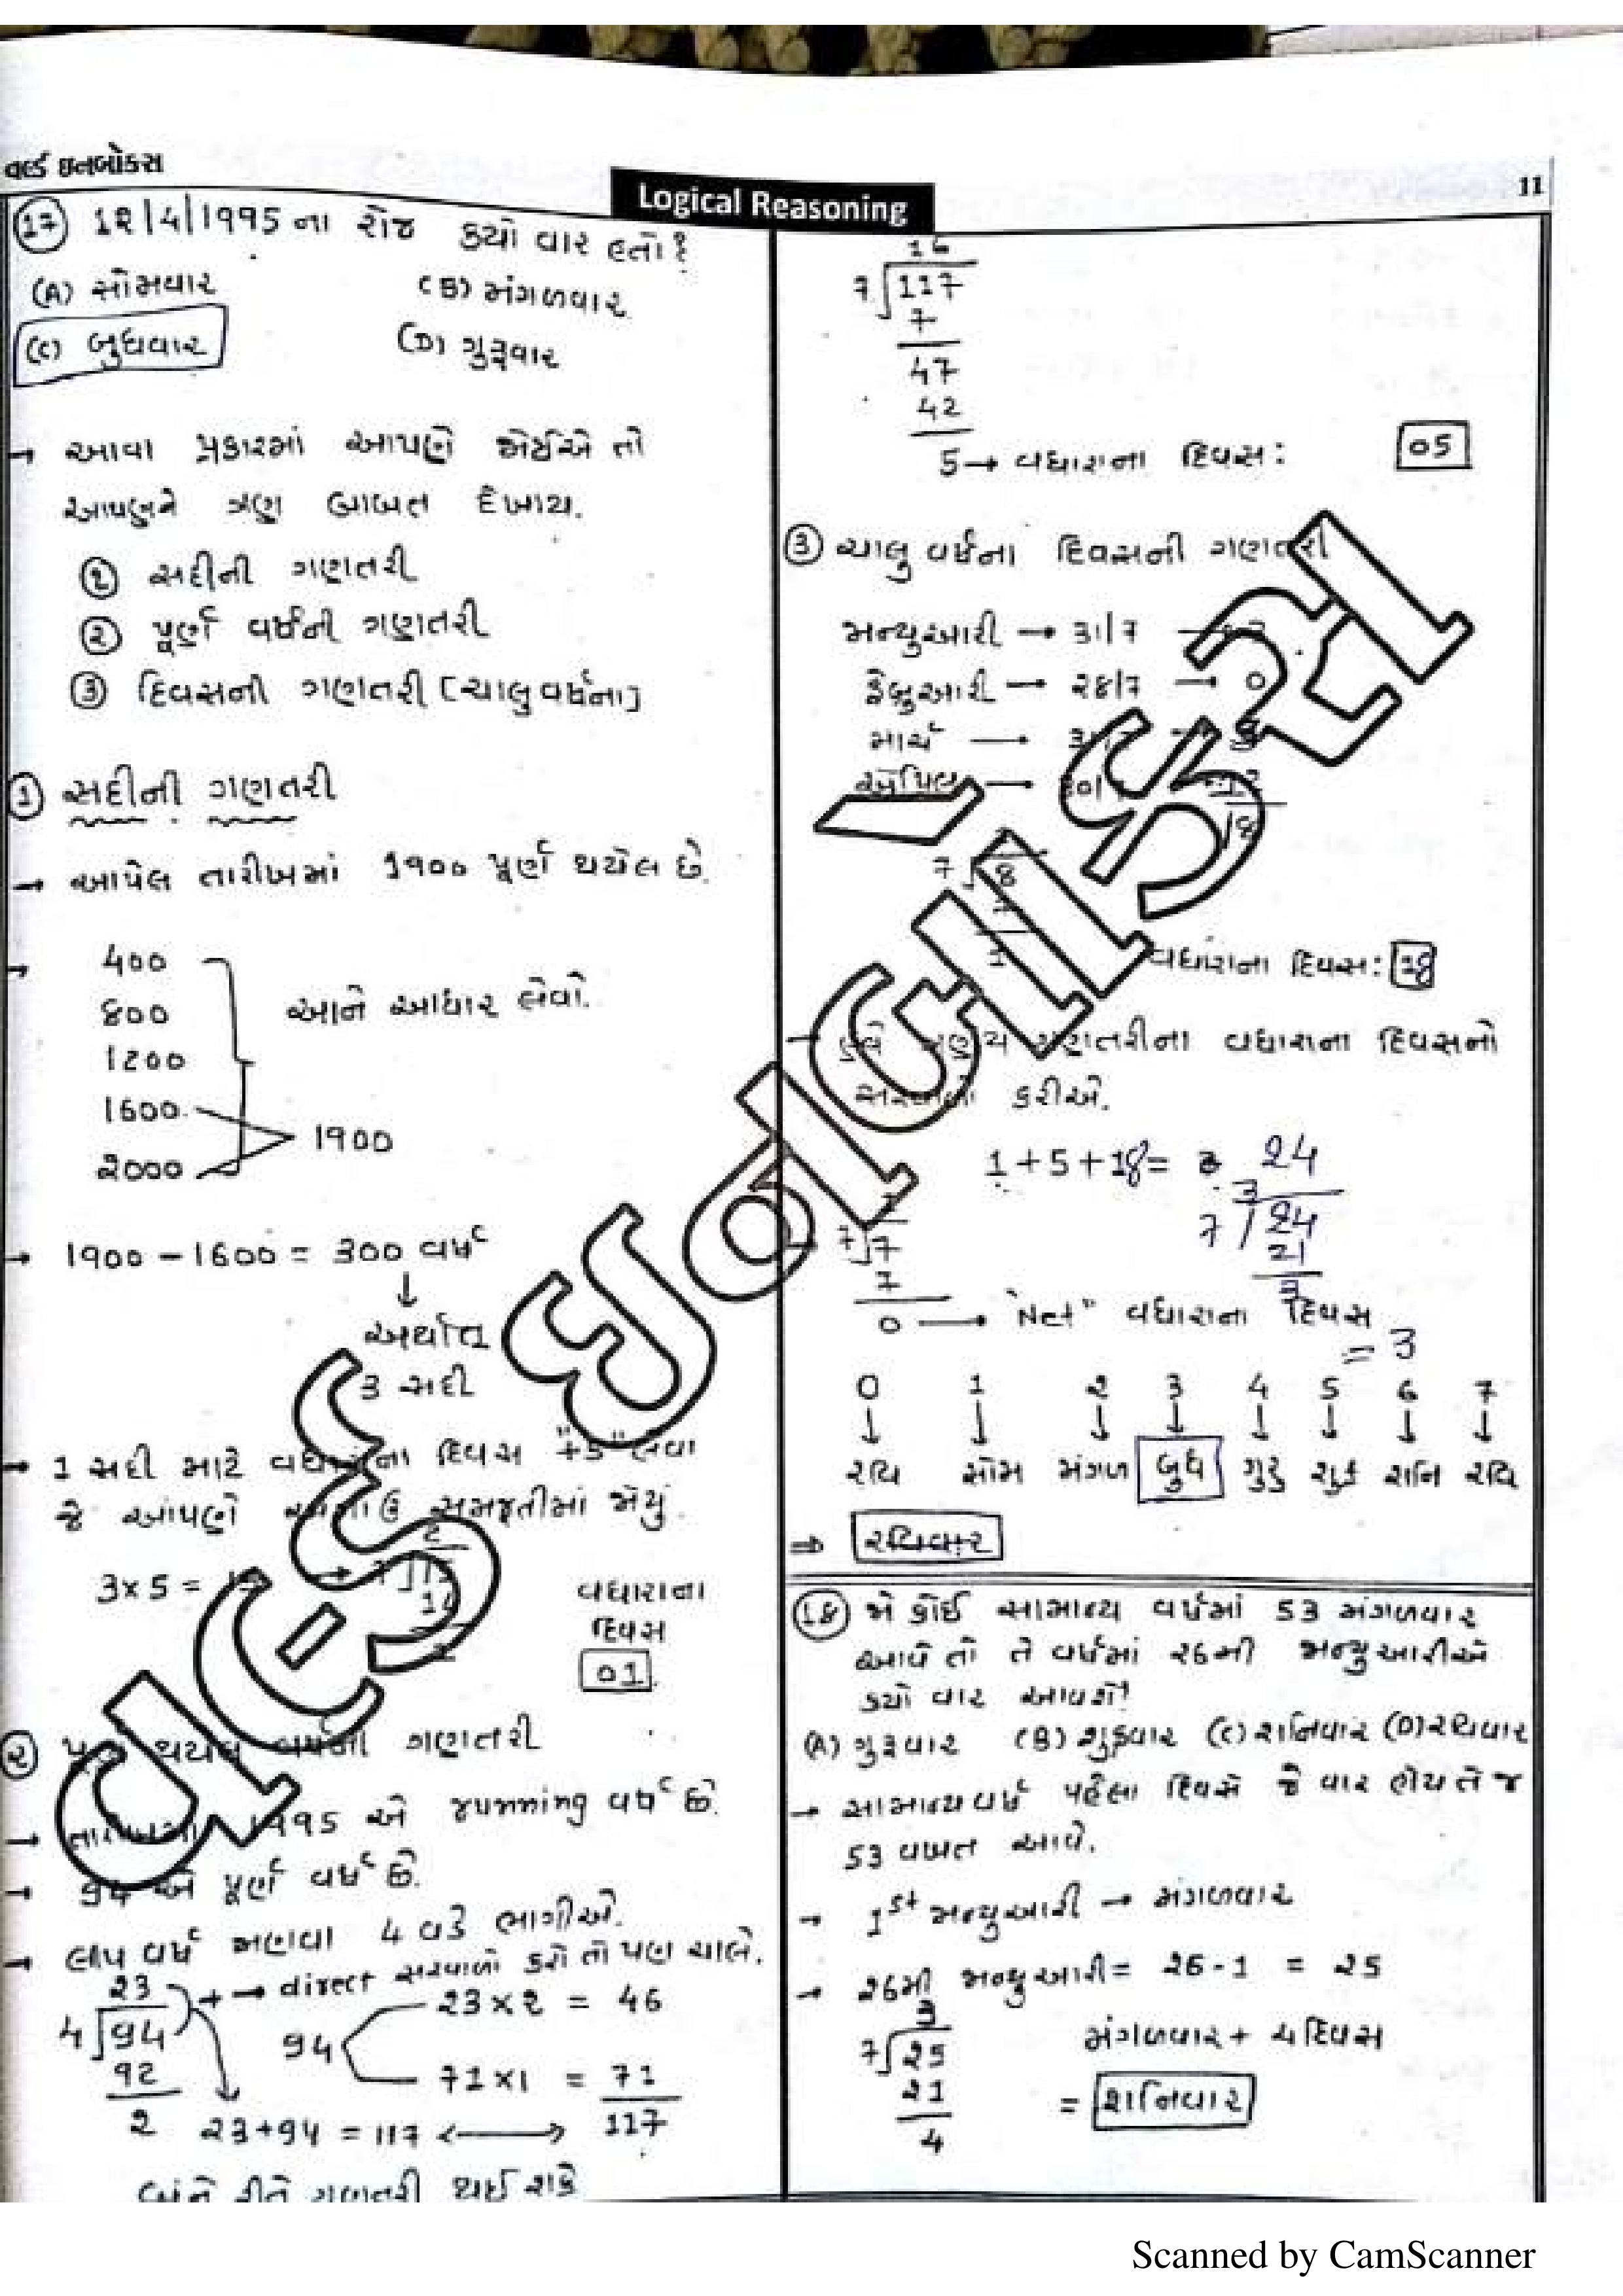 વર્લ્ડ ઇનબોક્સ
Logical Reasoning
11
(17) 1૨/4/1995 ના રોજ કયો વાર હતો?
(A) સોમવાર (B) મંગળવાર
(C) બુધવાર (D) ગુરૂવાર
→ આવા પ્રકારમાં આપણે જોઈએ તો
આપણને ત્રણ બાબત દેખાય.
① સદીની ગણતરી
② પૂર્ણ વર્ષની ગણતરી
③ દિવસની ગણતરી [ચાલુ વર્ષના]
① સદીની ગણતરી
→ આપેલ તારીખમાં 1900 પૂર્ણ થયેલ છે.
→ 400
800 આને આધાર લેવો.
1200
1600
1900
2000
→ 1900 - 1600 = 300 વર્ષ
↓
અર્થાત
3 સદી
→ 1 સદી માટે વધારાના દિવસ "+5" લેવા
જે આપણે સમજૂતીમાં જોયું.
3x5 =
વધારાના
દિવસ
01
② ગણતરી
→ 1995 એ running વર્ષ છે.
→ 94 એ પૂર્ણ વર્ષ છે.
→ લીપ વર્ષ જાણવા 4 વડે ભાગીએ.
→ direct સરવાળો કરો તો પણ ચાલે.
23
4 94
92
2
94
23 x 2 = 46
71 x 1 = 71
117
23+94 = 117 ↔
બંને રીતે ગણતરી થઈ શકે
16
7 117
7
47
42
5 → વધારાના દિવસ: 05
③ ચાલુ વર્ષના દિવસની ગણતરી
જાન્યુઆરી → 31/7
ફેબ્રુઆરી → 28/7 → 0
માર્ચ →
એપ્રિલ →
7 8
વધારાના દિવસ: 18
→ ગણતરીના વધારાના દિવસનો
કરીએ.
1+5+18= 24
3
7 24
21
3
7 7
7
0 → "Net" વધારાના દિવસ
= 3
0 1 2 3 4 5 6 7
↓ ↓ ↓ ↓ ↓ ↓ ↓ ↓
રવિ સોમ મંગળ બુધ ગુરુ શુક્ર શનિ રવિ
⇒ રવિવાર
(18) જો કોઈ સામાન્ય વર્ષમાં 53 મંગળવાર
આવે તો તે વર્ષમાં ૨6મી જાન્યુઆરીએ
કયો વાર આવશે?
(A) ગુરૂવાર (B) શુક્રવાર (C) શનિવાર (D) રવિવાર
→ સામાન્ય વર્ષ પહેલા દિવસે જે વાર હોય તે જ
53 વખત આવે.
→ 1st જાન્યુઆરી → મંગળવાર
→ ૨6મી જાન્યુઆરી = 26 - 1 = 25
3
7 25
21
4
મંગળવાર + 4 દિવસ
= શનિવાર
Scanned by CamScanner